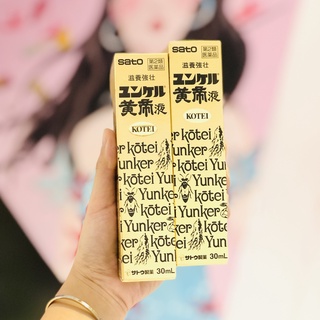 sato
第2類
医薬品
滋養強壮
ユンケル
黄帝液
KOTEI
Yunker
kōtei
Yunker
kōtei
Yunker
kōtei
Yunker
サトウ製薬 30mL
sato
第2類
医薬品
滋養強壮
ユンケル
黄帝液
KOTEI
kōtei
Yunker
kōtei
Yunker
kōtei
Yunker
サトウ製薬 30mL